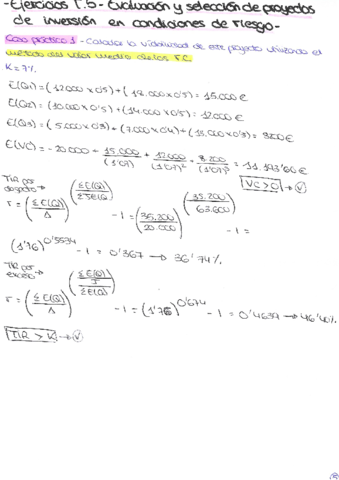 -Ejercicios T.5- Evaluación y selección de proyectos
de inversión en condiciones de riesgo-
Caso práctico 1 - Calcular la viabilidad de este proyecto utilizando el
método del valor medio de los F.C.
K=7%
E(Q1)=(12000 x 0'5) + (18.000 x 0'5) = 15.000€
E(Q2)=(10.000 x 0'5)+(14.000 x 0'5) = 12000€
E(Q3)=(5.000 x 0'3)+(7.000 x 0'4)+(13.000 x 0'3)= 8200€
E(VC) = -20000 + 15.000/(1'07) + 12.000/(1'07)² + 8.200/(1'07)³ = 11.193'60€ VC>0 → V
TIR por
defecto →
r = (ΣE(Q)/A)^(ΣE(Q)/ΣTE(Q)) - 1 = (35.200/20.000)^(35.200/63.600) - 1 =
(1'76)^0'5534 - 1 = 0'367 → 36'74%
TIR por
exceso →
r = (ΣE(Q)/A)^(ΣE(Q)/T/ΣE(Q)) - 1 = (1'76)^0'674 - 1 = 0'4639 → 46'40%
TIR > K → V